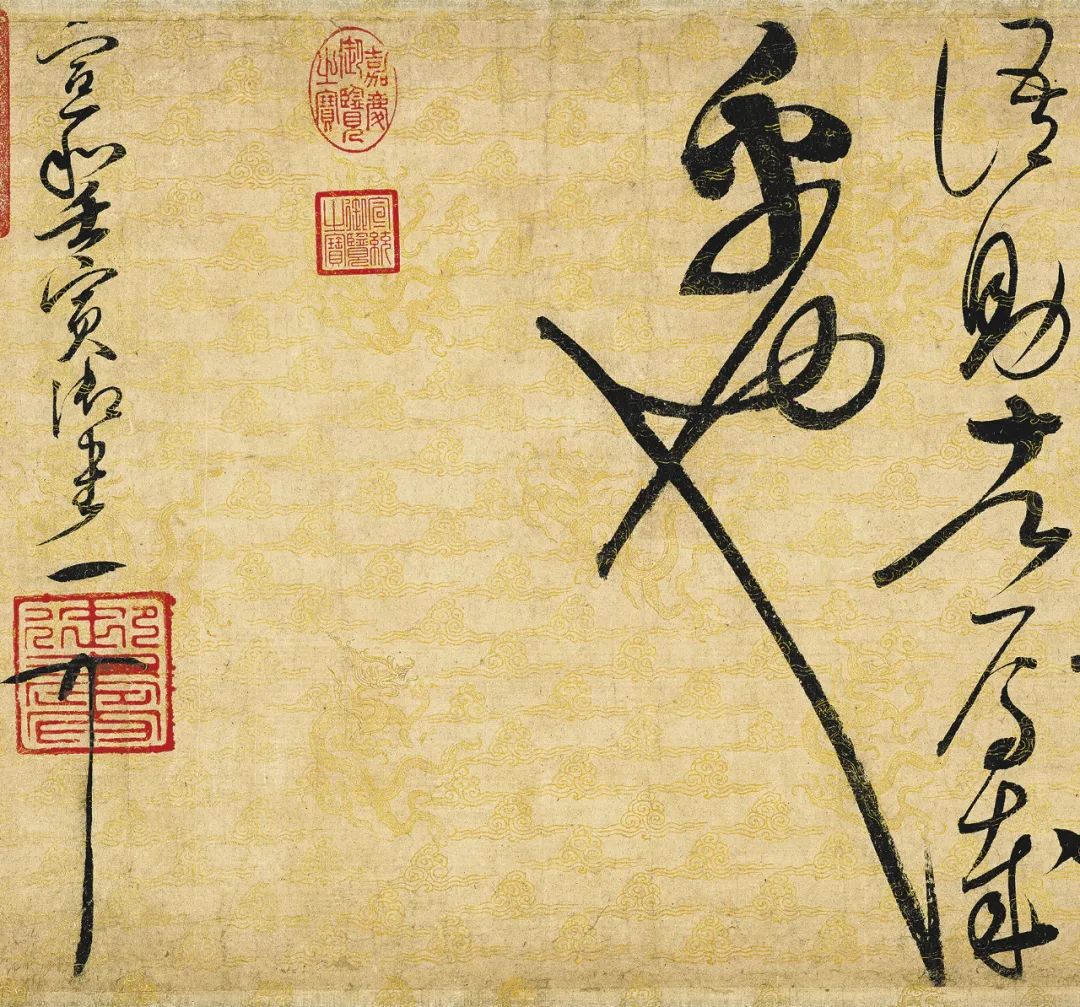 語助者焉哉
乎也
嘉慶御覽之寶
宣統御覽之寶
宣和壬寅御書